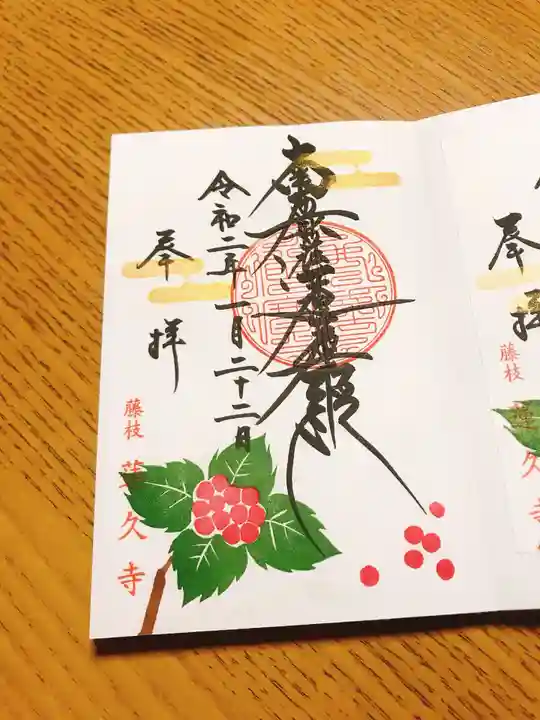 奉拝
藤枝 蓮久寺
南無妙法蓮華経
令和二年一月二十二日
奉拝
藤枝 蓮久寺